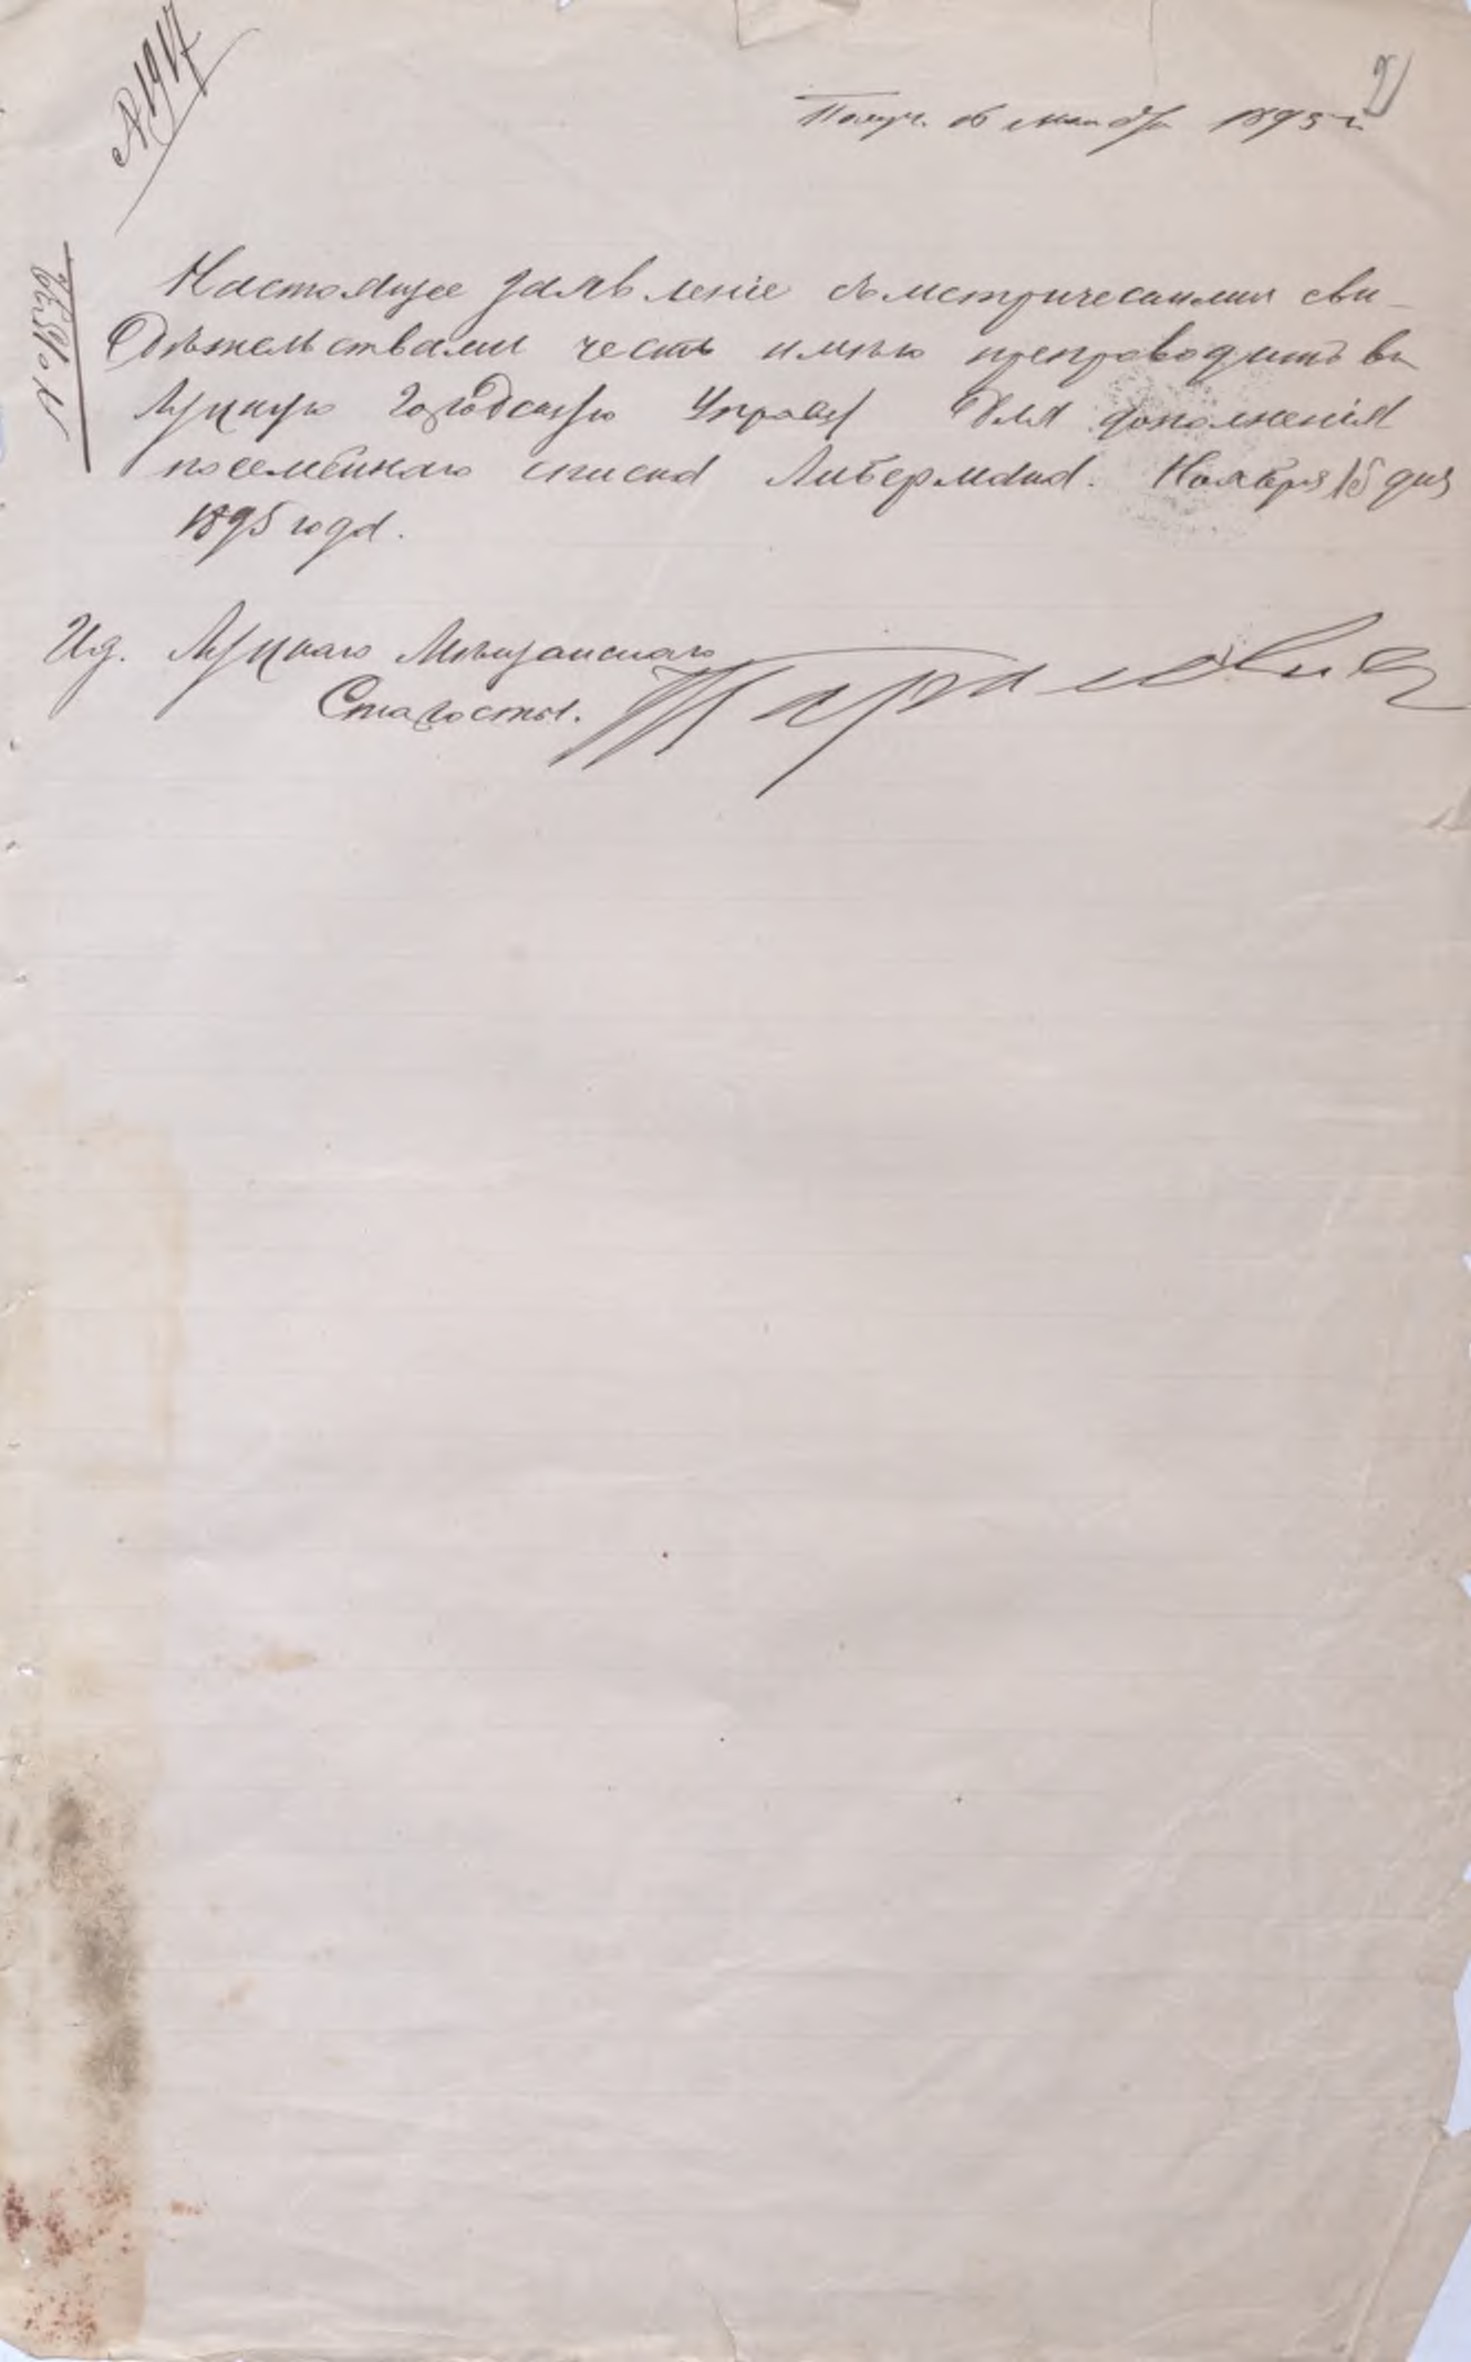 № 1917
2
Получ. 16 ноября 1895 г.
№ 1539
Настоящее заявленіе съ метрическими сви-
дѣтельствами честь имѣю препроводить въ
Луцкую Городскую Управу для дополненія
посемейнаго списка Либермана. Ноября 15 дня
1895 года.
И д. Луцкаго Мѣщанскаго
Старосты.